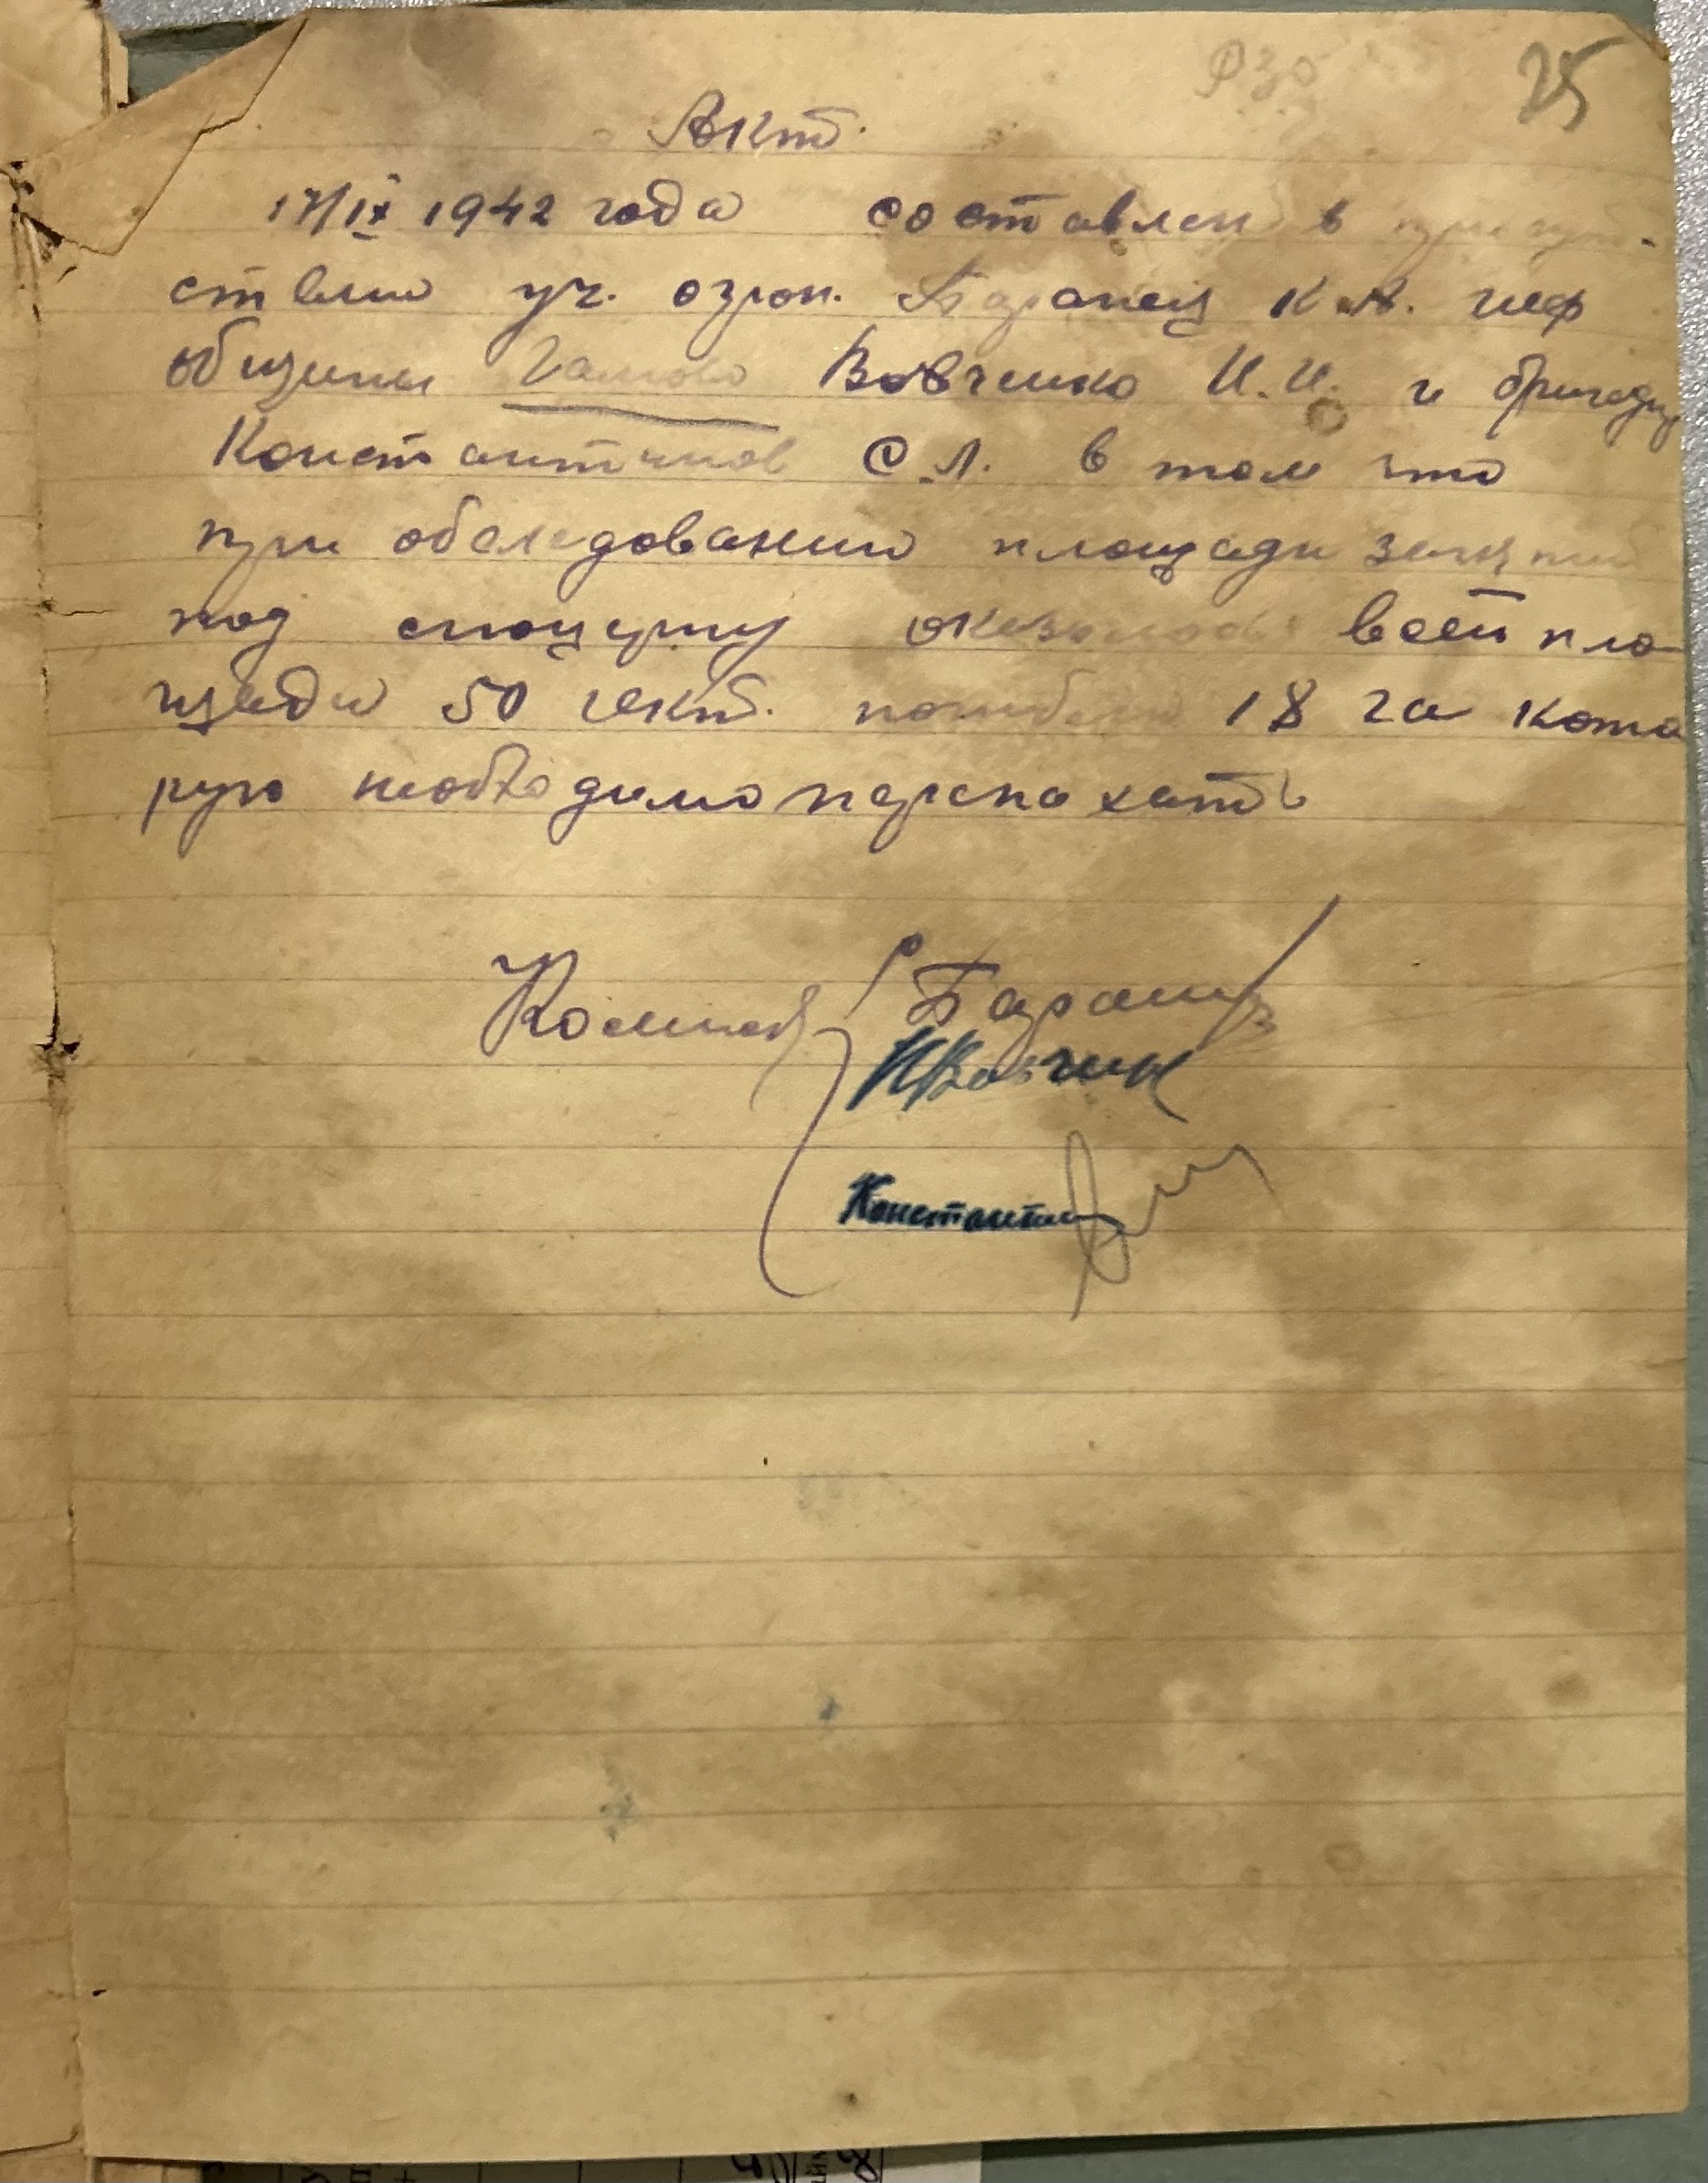 РЗО 25
Акт.
17/IX 1942 года составлен в присут-
ствии уч. агрон. Баранец К.А. шеф
общины Вовченко И.И. и бригадир
Константинов С.Л. в том что
при обследовании площади занятой
под люцерну оказалось всей пло-
щади 50 гект. погибело 18 га кото
рую необходимо перепахать
Комисия Баранец
ИВовченк
Константин